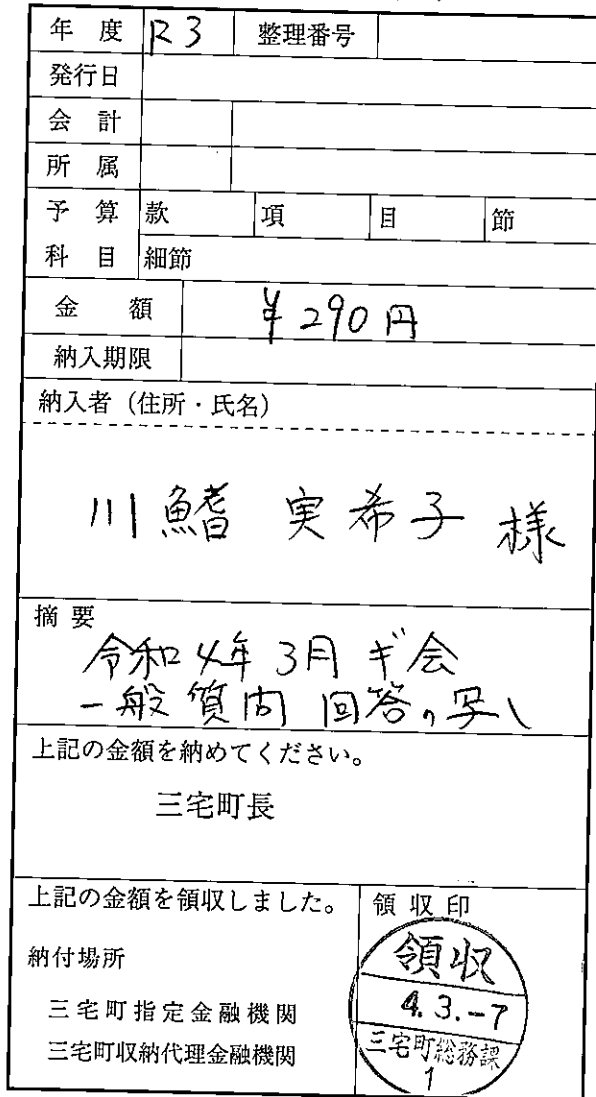 年度 R3 整理番号
発行日
会計
所属
予算 款 項 目 節
科目 細節
金額 ¥290円
納入期限
納入者（住所・氏名）
川鰭 実希子 様
摘要
令和4年3月ギ会
一般質問 回答の写し
上記の金額を納めてください。
三宅町長
上記の金額を領収しました。 領収印
納付場所
三宅町指定金融機関
三宅町収納代理金融機関
領収
4.3.-7
三宅町総務課
1